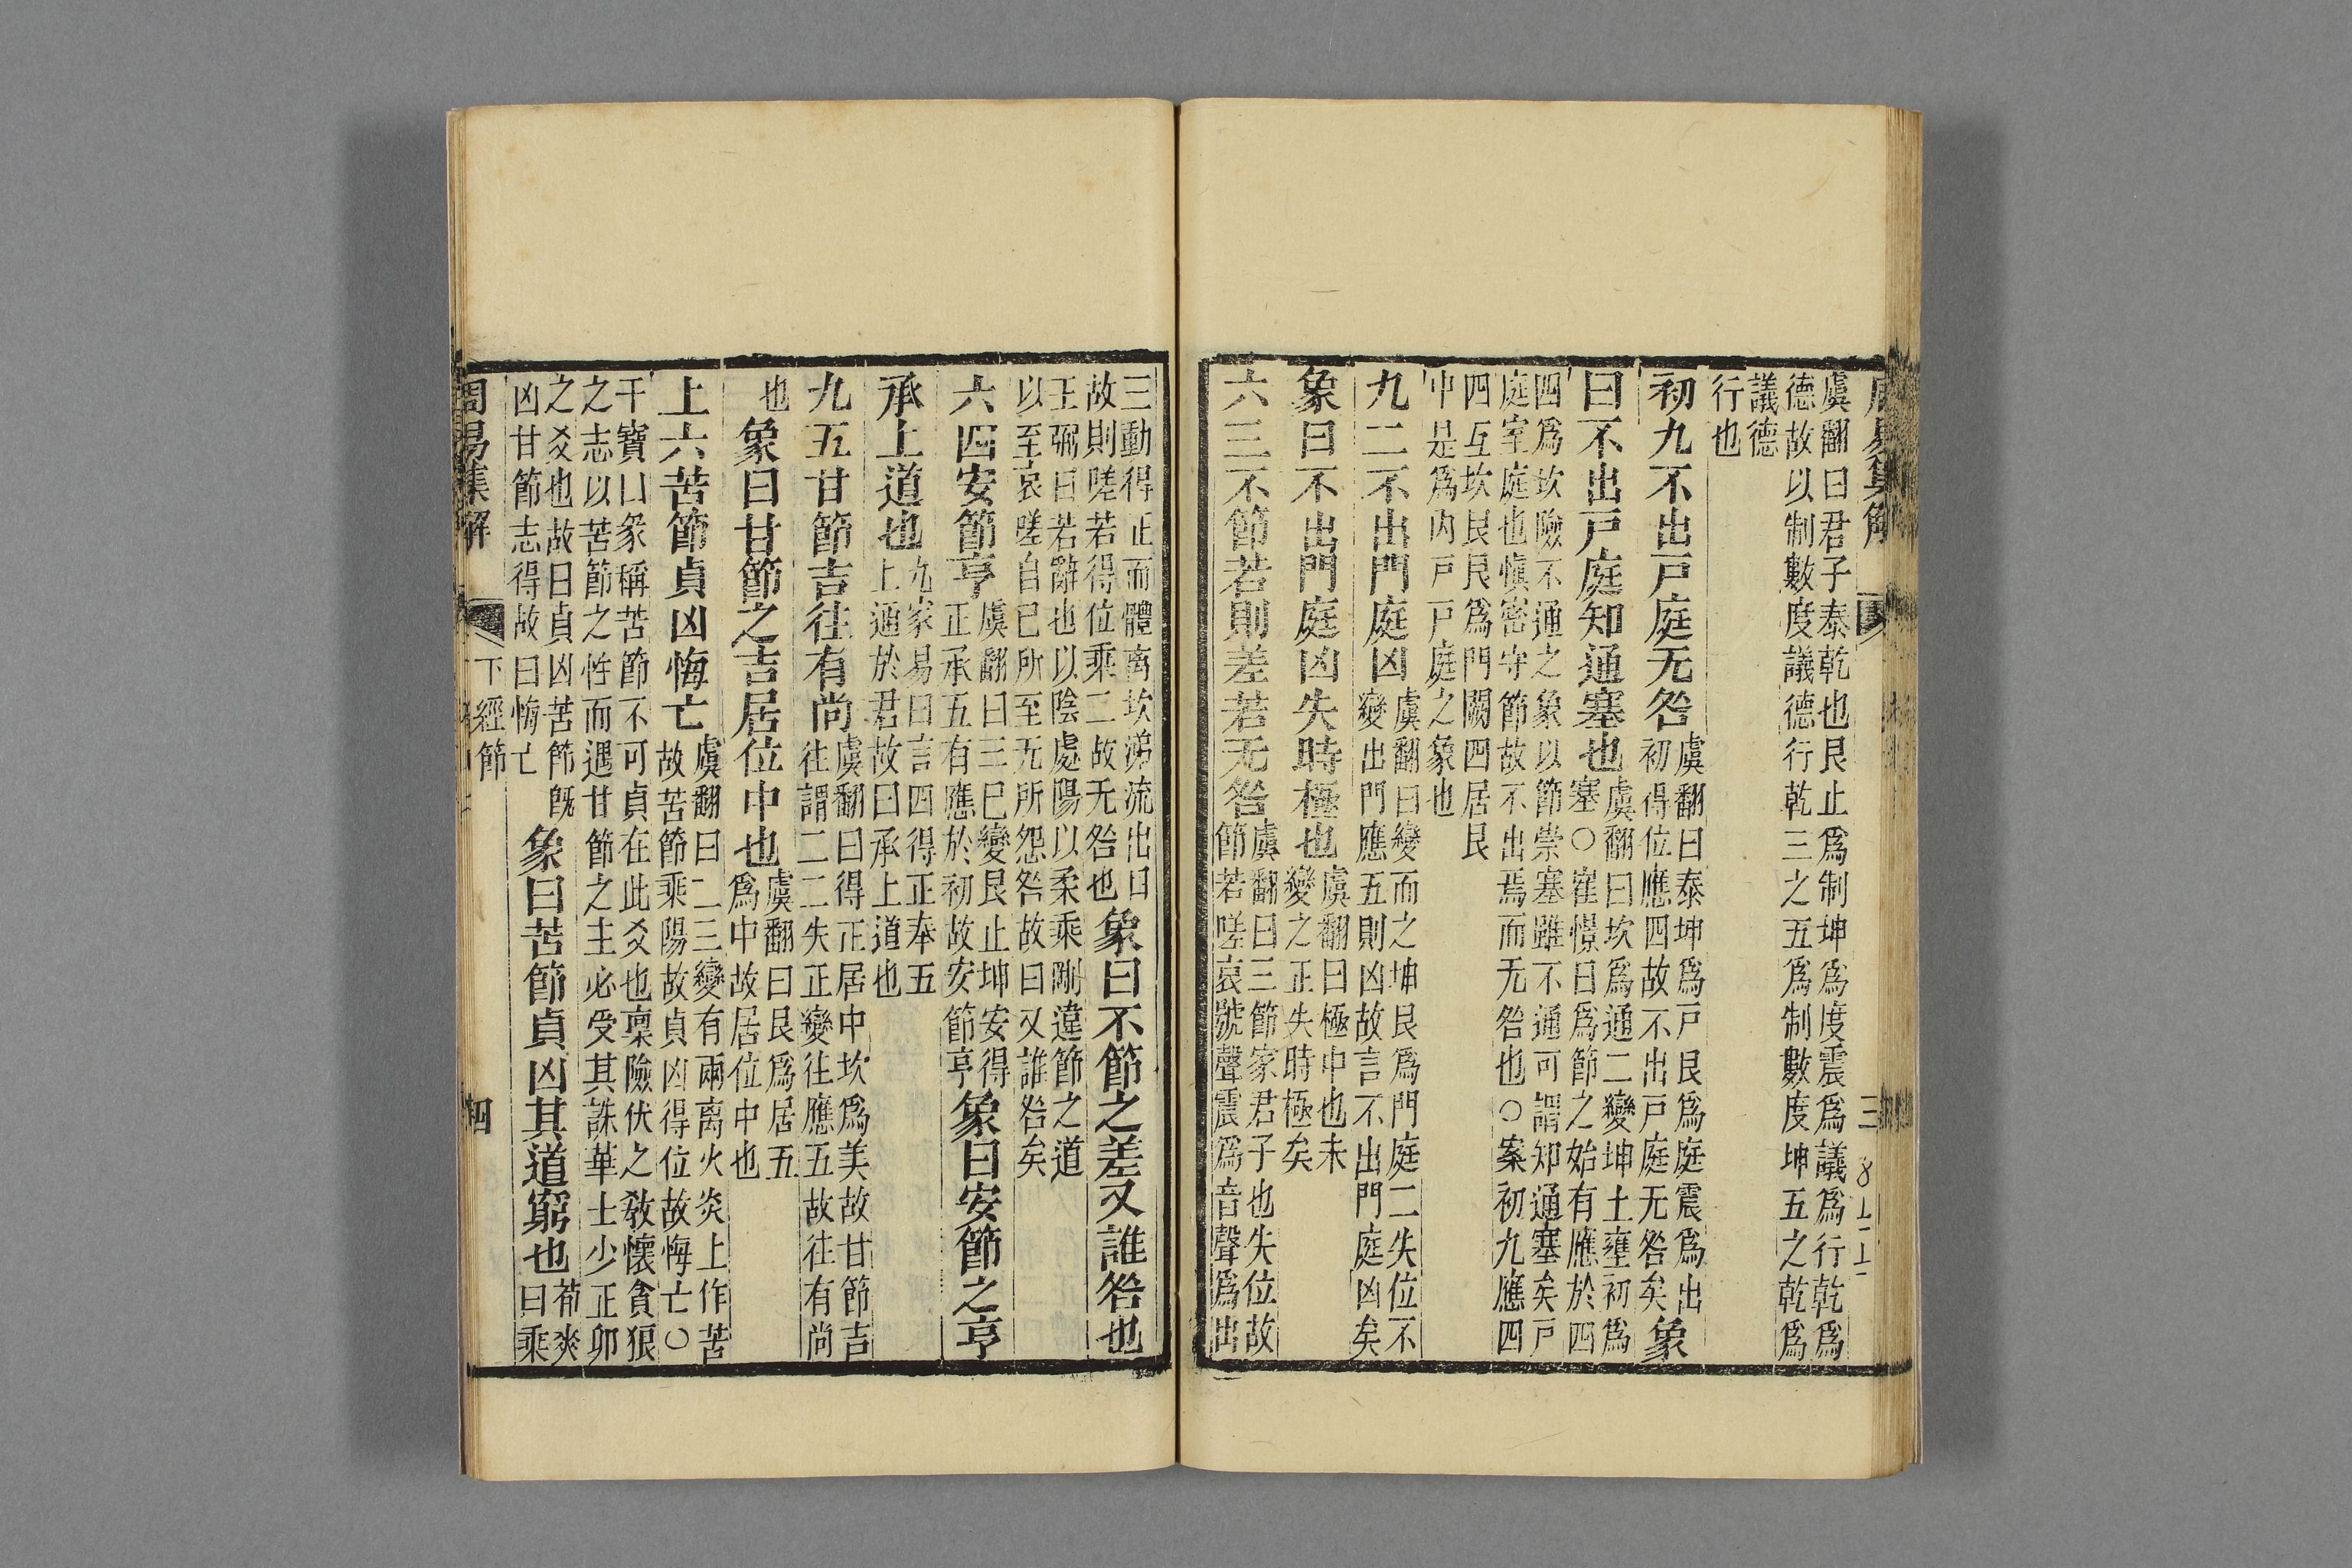 周易集解
三
虞翻曰君子泰乾也艮止爲制坤爲度震爲議爲行乾爲
德故以制數度議德行乾三之五爲制數度坤五之乾爲
議德
行也
初九不出戸庭无咎
虞翻曰泰坤爲戸艮爲庭震爲出
初得位應四故不出戸庭无咎矣
象
曰不出戸庭知通塞也
虞翻曰坎爲通二變坤土壅初爲
塞○崔憬曰爲節之始有應於四
四爲坎險不通之象以節崇塞雖不通可謂知通塞矣戸
庭室庭也愼密守節故不出焉而无咎也○案初九應四
四互坎艮艮爲門闕四居艮
中是爲内戸戸庭之象也
九二不出門庭凶
虞翻曰變而之坤艮爲門庭二失位不
變出門應五則凶故言不出門庭凶矣
象曰不出門庭凶失時極也
虞翻曰極中也未
變之正失時極矣
六三不節若則差若无咎
虞翻曰三節家君子也失位故
節若嗟哀號聲震爲音聲爲出
三動得正而體离坎涕流出目
故則嗟若得位乘二故无咎也
象曰不節之差又誰咎也
王弼曰若辭也以陰處陽以柔乘剛違節之道
以至哀嗟自已所至无所怨咎故曰又誰咎矣
六四安節亨
虞翻曰三巳變艮止坤安得
正承五有應於初故安節亨
象曰安節之亨
承上道也
九家易曰言四得正奉五
上通於君故曰承上道也
九五甘節吉往有尚
虞翻曰得正居中坎爲美故甘節吉
往謂二二失正變往應五故往有尚
也
象曰甘節之吉居位中也
虞翻曰艮爲居五
爲中故居位中也
上六苦節貞凶悔亡
虞翻曰二三變有兩离火炎上作苦
故苦節乘陽故貞凶得位故悔亡○
干寶曰彖稱苦節不可貞在此爻也稟險伏之敎懷貪狠
之志以苦節之性而遇甘節之主必受其誅華士少正卯
之爻也故曰貞凶苦節旣
凶甘節志得故曰悔亡
象曰苦節貞凶其道窮也
荀爽
曰乘
周易集解
下經節
四